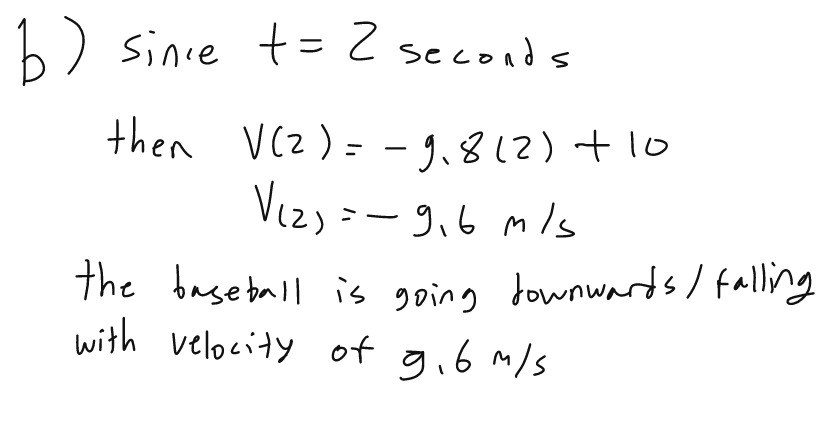 b) since t = 2 seconds
then V(2) = - 9.8(2) + 10
V(2) = - 9.6 m/s
the baseball is going downwards/falling
with velocity of 9.6 m/s